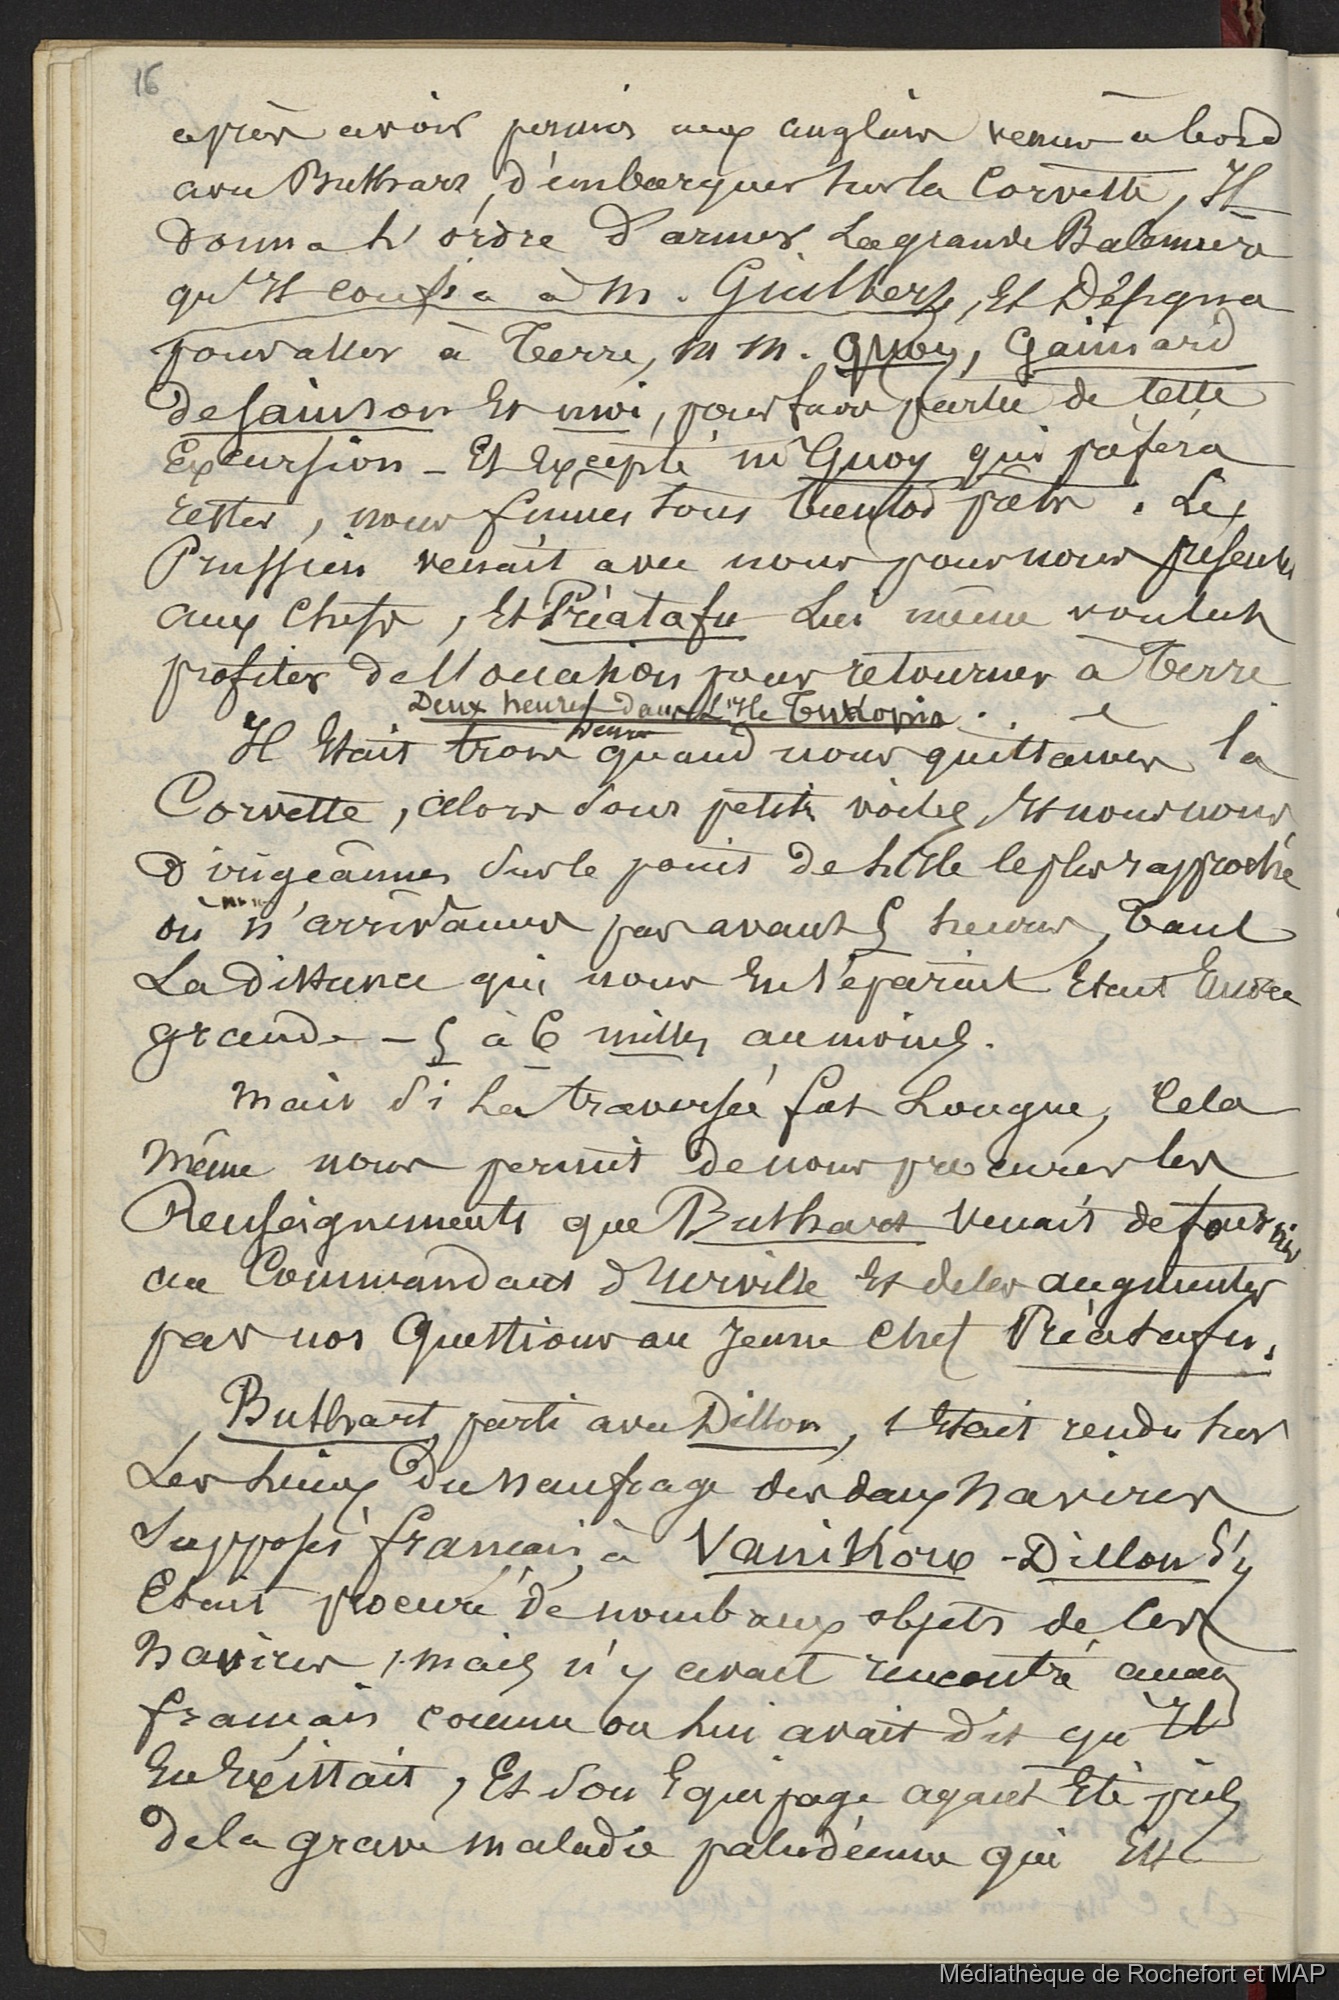 16
après avoir permis aux anglais venus à bord
avec Buthart, d'embarquer sur la Corvette, Il
donna l'ordre d'armer La grande Baleinière
qu'Il confia à M. Guilbert, Et Désigna
pour aller à Terre, MM. Quoy, Gaimard
de Sainson Et moi, pour faire partie de Cette
Excursion – Et Excepté Mr Quoy qui préféra
rester, nous fûmes tous bientot prêts. Le
Prussien venait avec nous pour nous présenter
aux Chefs, Et Préatafu Lui même voulut
profiter de l'occasion pour retourner à Terre
Deux heures dans L'Ile Tukopia.
Il Etait trois heures quand nous quittâmes la
Corvette, alors sous petites voiles, Et nous nous
dirigeâmes sur le point de l'isle le plus rapproché
où nous n'arrivâmes pas avant 5 heures, Tant
La distance qui nous En séparait Etait Encore
grande – 5 à 6 milles au moins.
Mais si La traversée fut Longue, Cela
Même nous permit de nous procurer les
Renseignements que Buthart Venait de fournir
au Commandant d'Urville Et de les augmenter
par nos Questions au Jeune Chef Préatafu.
Buthart parti avec Dillon, s'Etait rendu sur
Les Lieux Du Naufrage des deux Navires
Supposés français à Vanikoro – Dillon s'y
Etait procuré de nombreux objets de Ces
Navires, mais n'y avait rencontré aucun
français comme on Lui avait dit qu'Il
En Existait, Et son Equipage ayant Eté pris
de la grave maladie paludéenne qui Est
Médiathèque de Rochefort et MAP